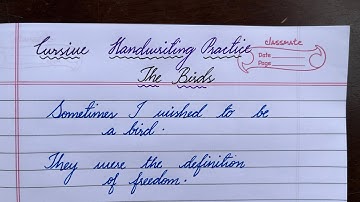 Cursive Handwriting Practice
classmate
Date
Page
The Birds
Sometimes I wished to be
a bird.
They were the definition
of freedom.